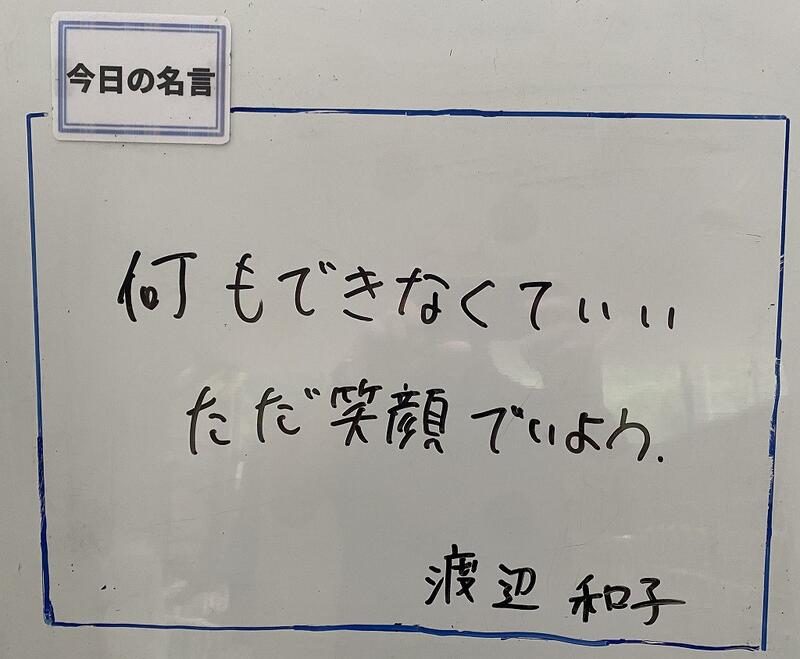 今日の名言
何もできなくていい
ただ笑顔でいよう.
渡辺 和子